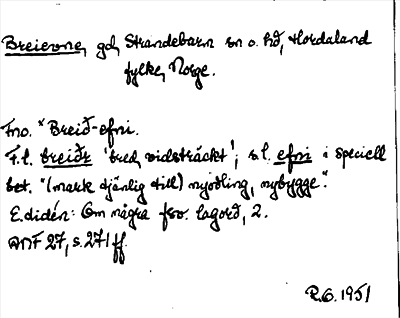 Breievne, gd, Strandebarm sn o. hd, Hordaland
fylke, Norge.
Fno. *Breið-efni.
F.l. breiðr 'bred, vidsträckt'; s.l. efni i speciell
bet. "(mark tjänlig till) nyodling, nybygge".
E. Lidén: Om några fsv. lagord, 2.
ANF 27, s. 271 ff.
R.O. 1951